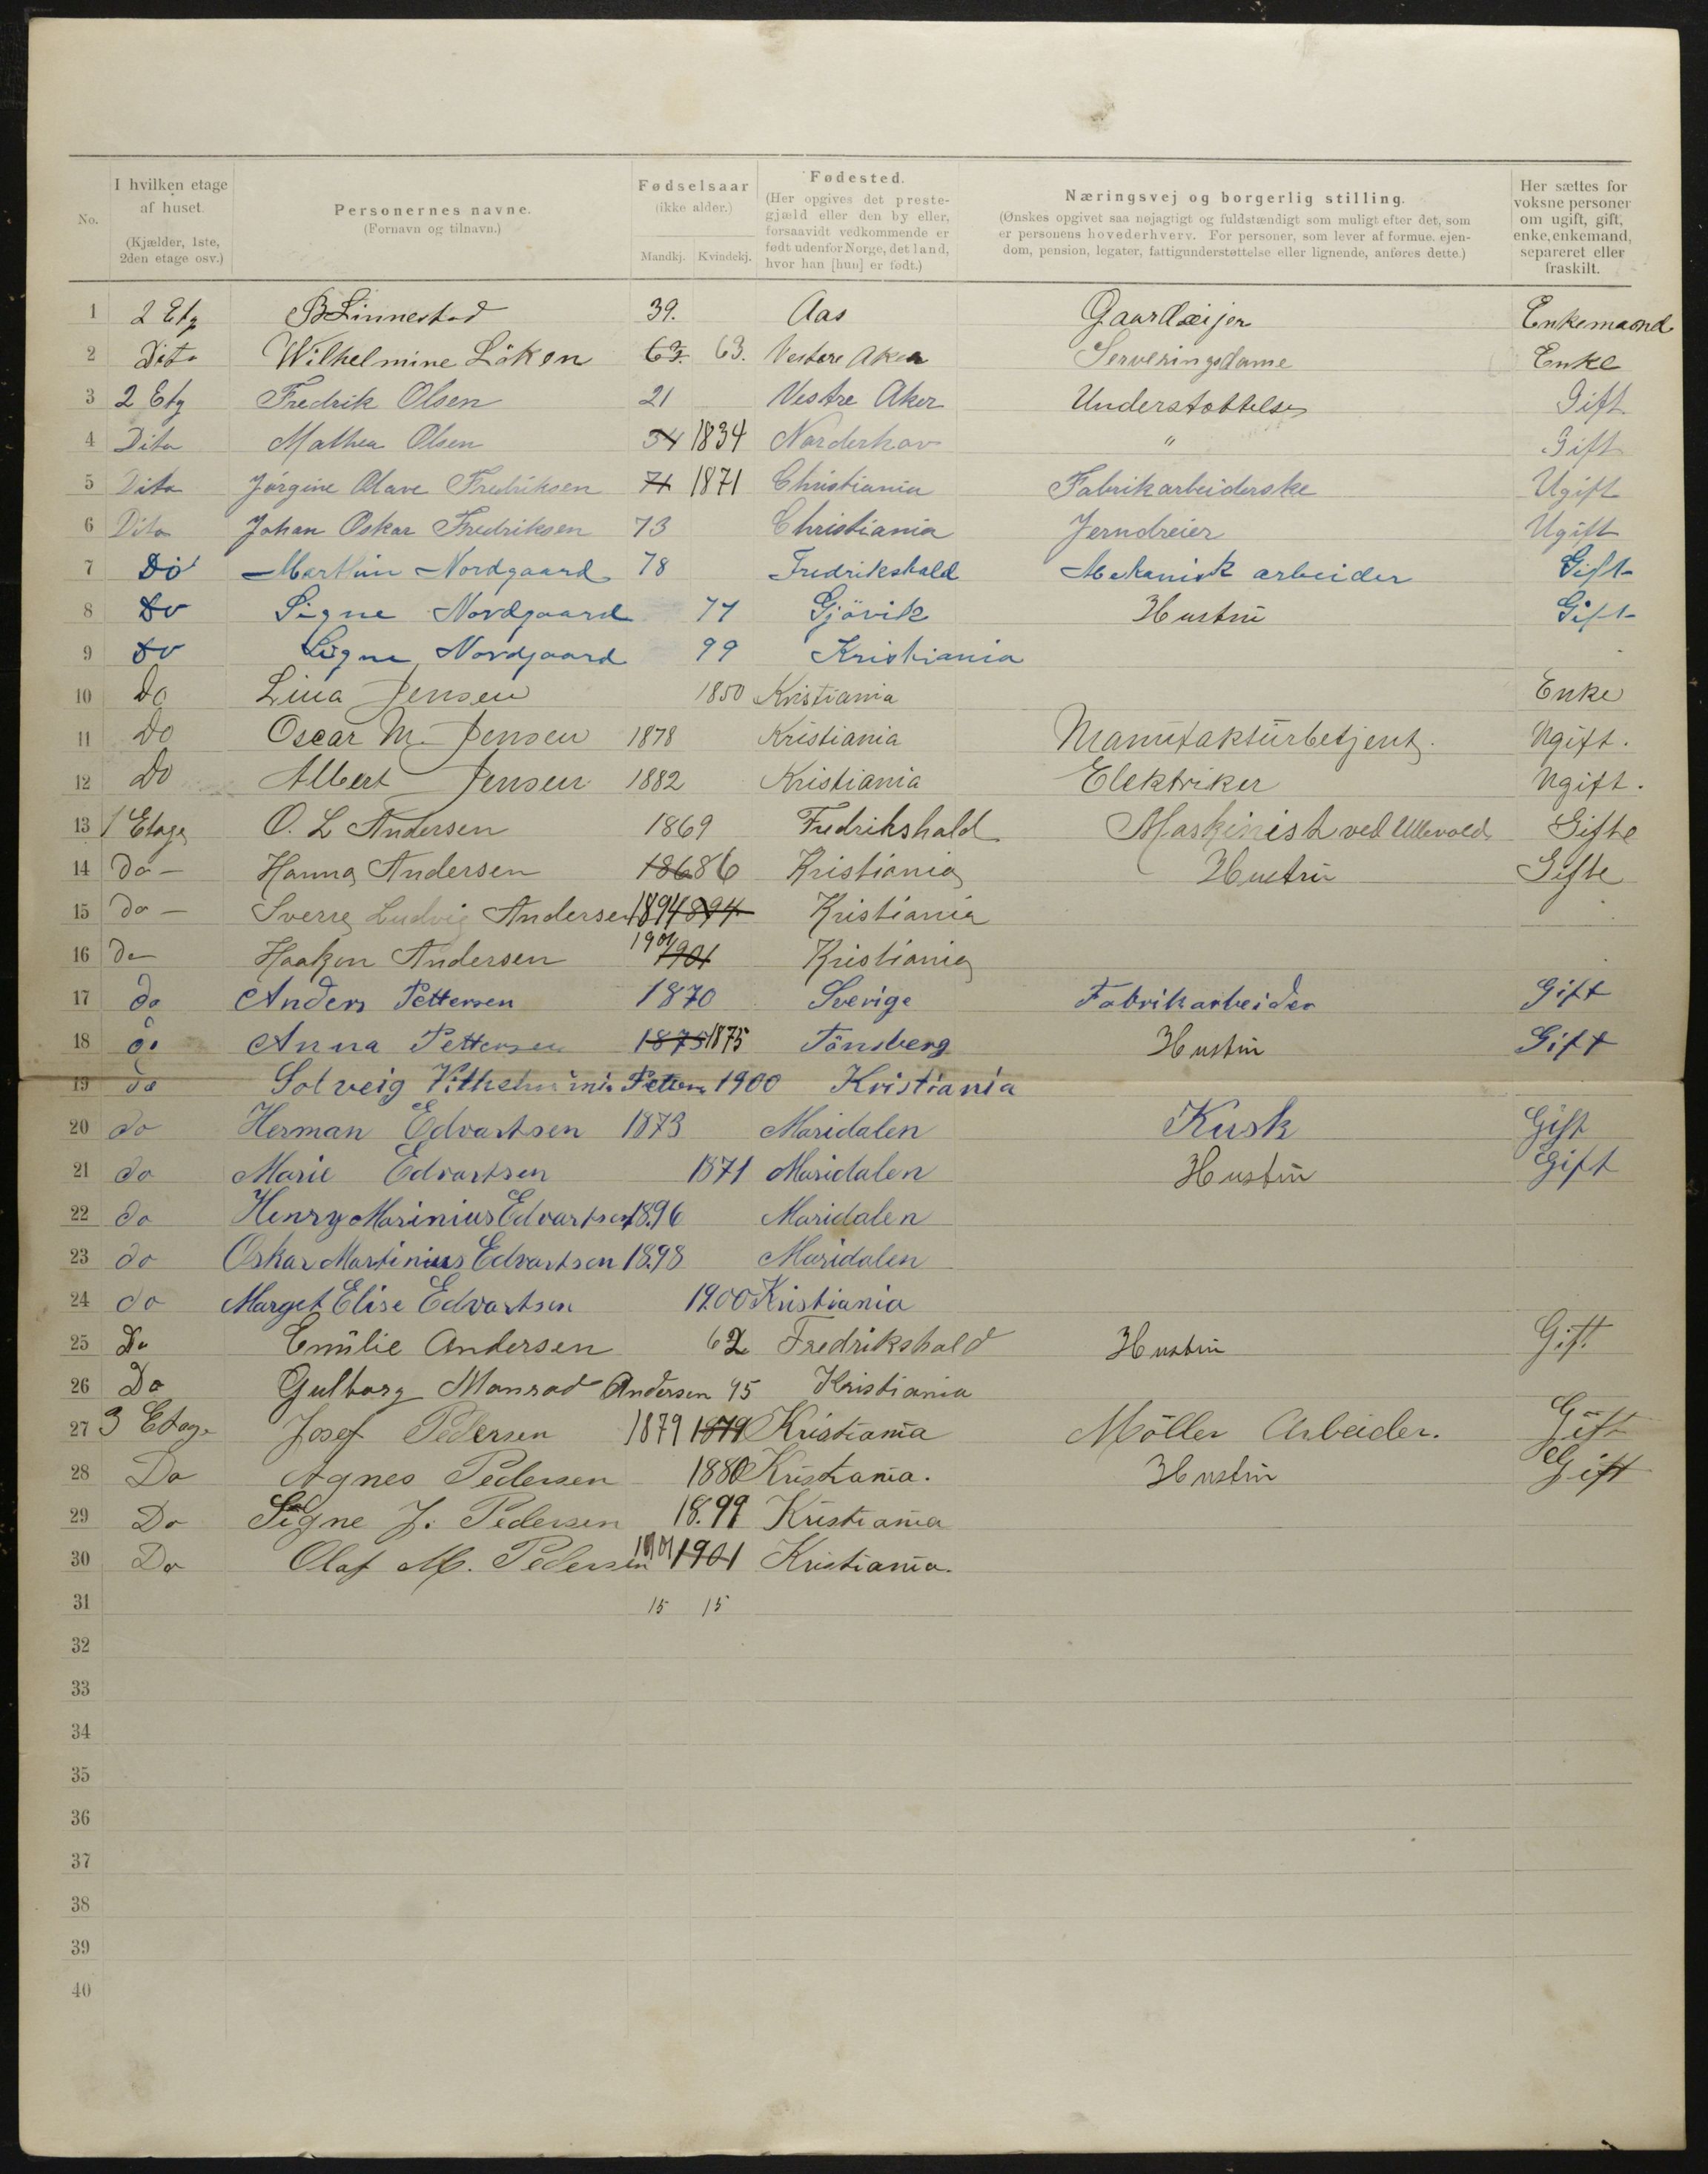 No. I hvilken etage af huset. (Kjælder, 1ste, 2den etage osv.) Personernes navne. (Fornavn og tilnavn.) Fødselsaar (ikke alder.) Mandkj. Kvindekj. Fødested. (Her opgives det prestegjæld eller den by eller, forsaavidt vedkommende er født udenfor Norge, det land, hvor han [hun] er født.) Næringsvej og borgerlig stilling. (Ønskes opgivet saa nøjagtigt og fuldstændigt som muligt efter det, som er personens hovederhverv. For personer, som lever af formue, ejendom, pension, legater, fattigunderstøttelse eller lignende, anføres dette.) Her sættes for voksne personer om ugift, gift, enke, enkemand, separeret eller fraskilt.
1 2 Etg B Linnestad 39. Aas Gaardeijer Enkemaand
2 Dito Wilhelmine Löken 63. 63. Vestere Aker Serveringsdame Enke
3 2 Etg Fredrik Olsen 21 Vestre Aker Understøttelse Gift
4 Dito Mathea Olsen 34 1834 Norderhov " Gift
5 Dito Jørgine Olave Fredriksen 71 1871 Christiania Fabrikarbeiderske Ugift
6 Dito Johan Oskar Fredriksen 73 Christiania Jerndreier Ugift
7 Do Marthin Nordgaard 78 Fredrikshald Mekanisk arbeider Gift
8 Do Signe Nordgaard 77 Gjövik Hustru Gift
9 Do Signe Nordgaard 99 Kristiania
10 Do Lina Jensen 1850 Kristiania Enke
11 Do Oscar M. Jensen 1878 Kristiania Manufakturbetjent. Ugift.
12 Do Albert Jensen 1882 Kristiania Elektriker Ugift.
13 1 Etage O. L Andersen 1869 Fredrikshald Maskinist ved Ullevold Gifte
14 do — Hanna Andersen 186886 Kristiania Hustru Gifte
15 do — Sverre Ludvig Andersen 1894 894 Kristiania
16 do Haakon Andersen 1901 1901 Kristiania
17 do Anders Pettersen 1870 Sverige Fabrikarbeider Gift
18 do Anna Pettersen 1875 1875 Tönsberg Hustru Gift
19 do Solveig Vilhelmine Petters 1900 Kristiania
20 do Herman Edvartsen 1873 Maridalen Kusk Gift
21 do Marie Edvartsen 1871 Maridalen Hustru Gift
22 do Henry Marinius Edvartsen 1896 Maridalen
23 do Oskar Martinius Edvartsen 1898 Maridalen
24 do Marget Elise Edvartsen 1900 Kristiania
25 Do Emilie Andersen 62 Fredrikshald Hustru Gift
26 Do Gulborg Monrad Andersen 95 Kristiania
27 3 Etage Josef Pedersen 1879 1879 Kristiania Möller Arbeider. Gift
28 Do Agnes Pedersen 1880 Kristiania. Hustru Gift
29 Do Signe J. Pedersen 18.99 Kristiania
30 Do Olaf M. Pedersen 1901 1901 Kristiania.
31 15 15
32
33
34
35
36
37
38
39
40